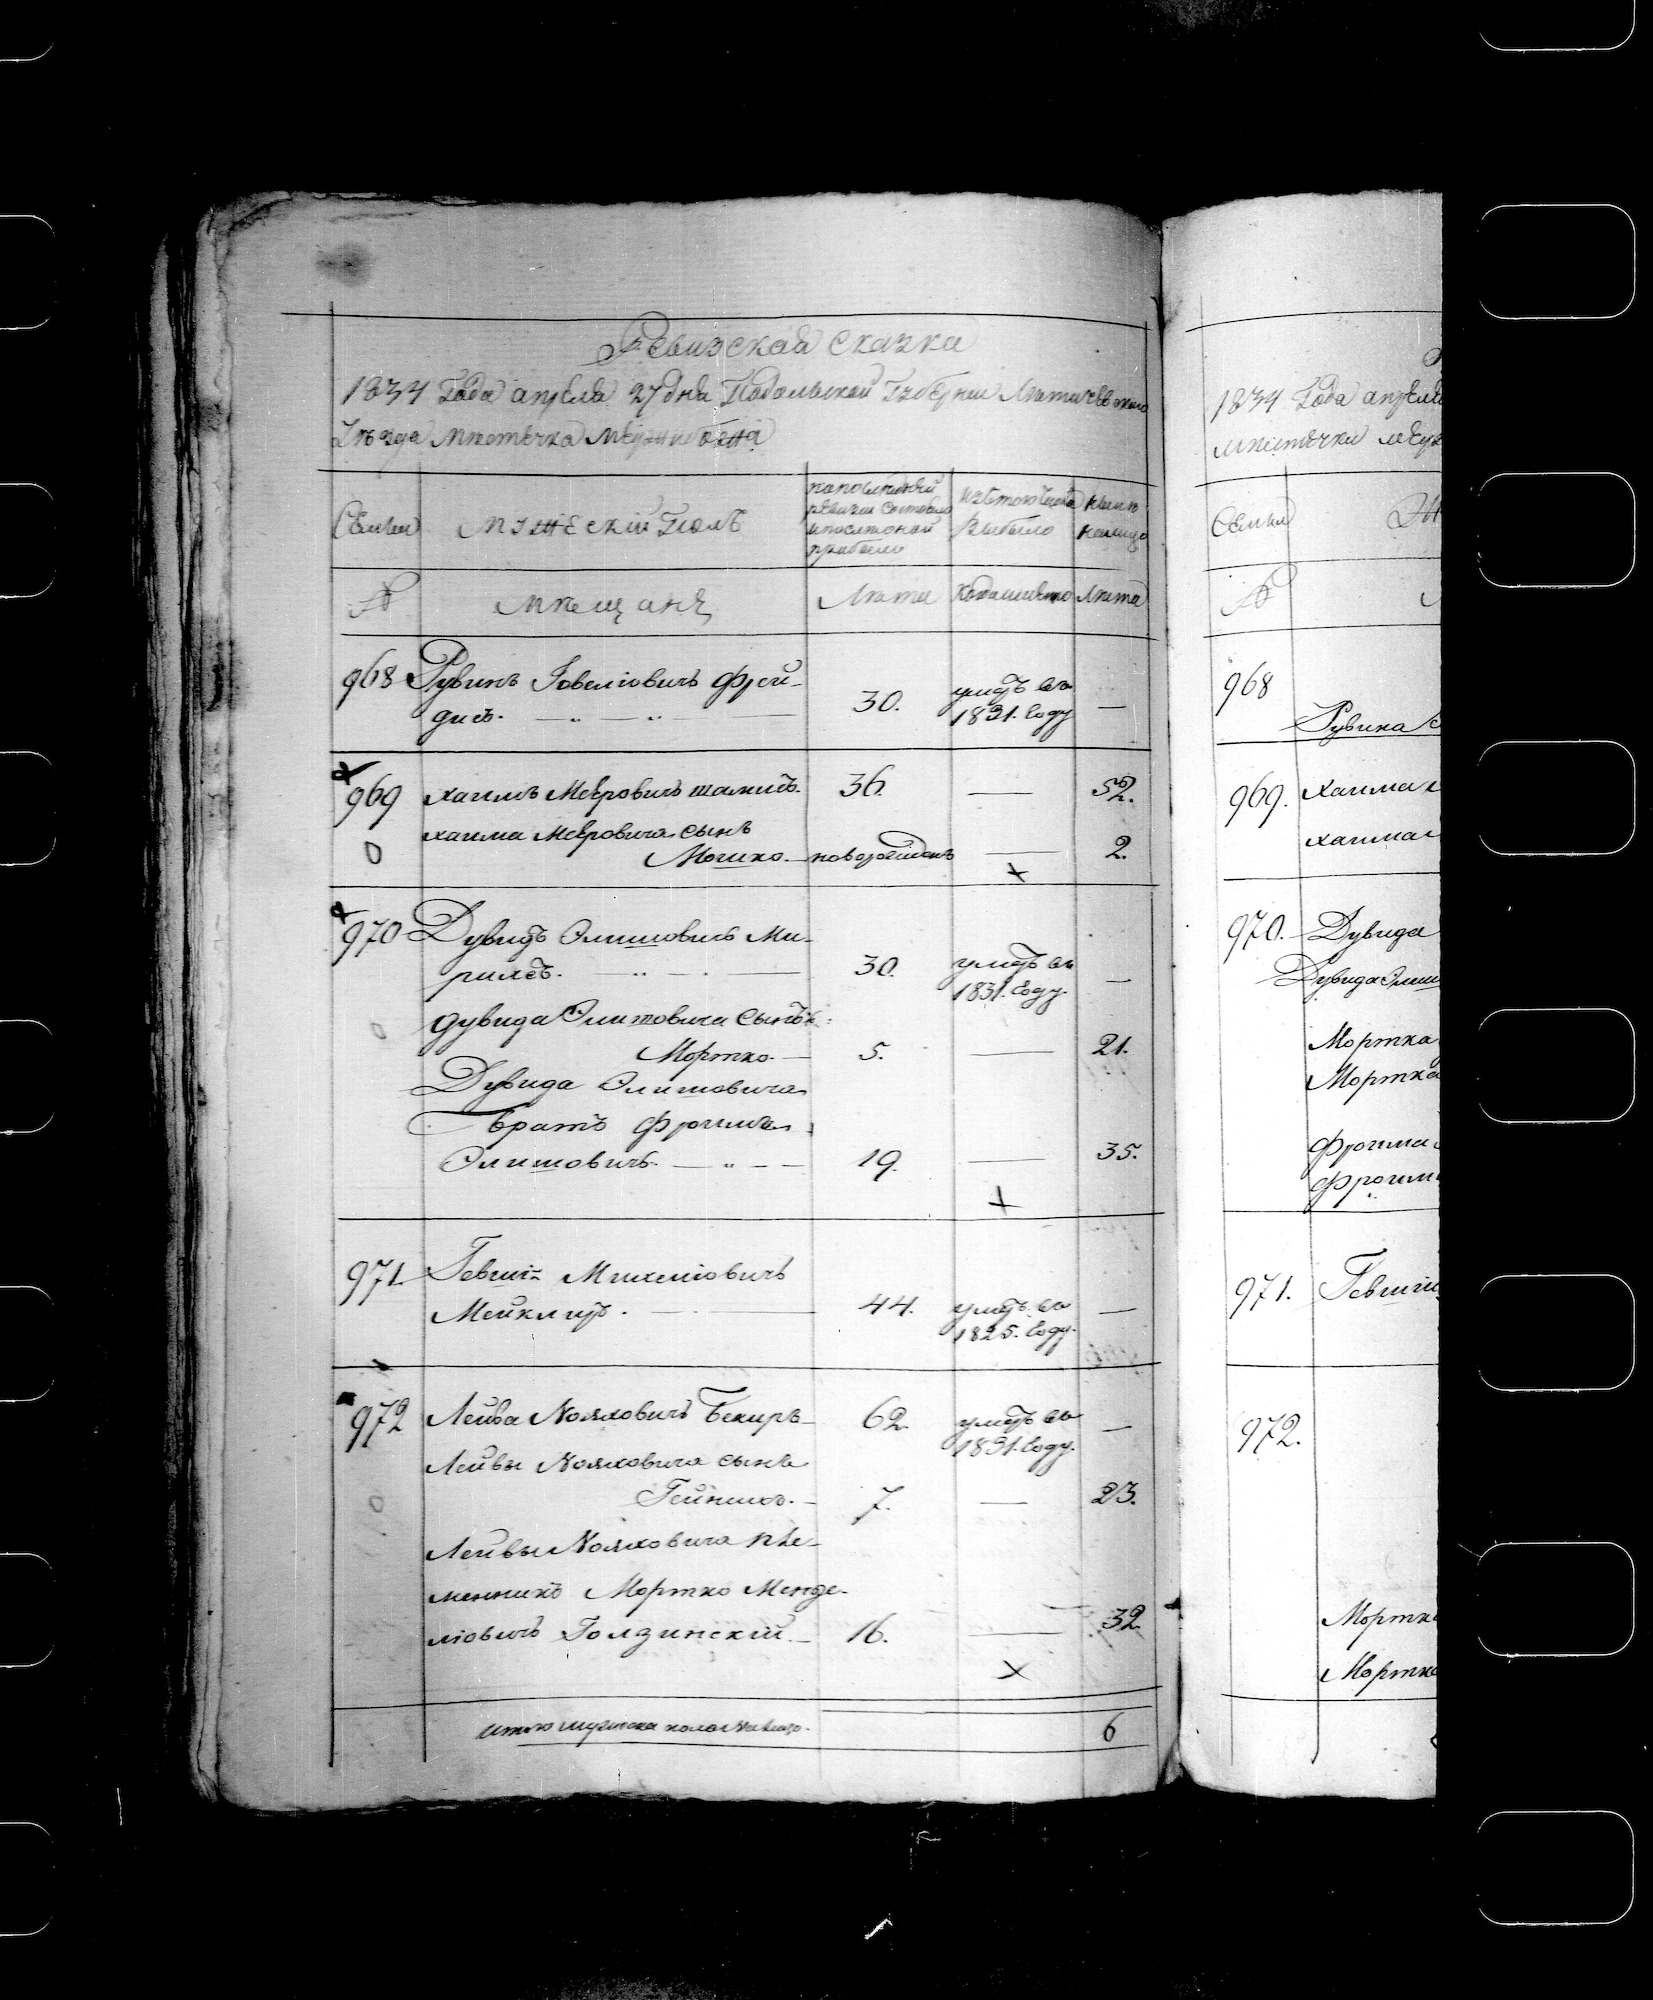 Ревизская сказка
1834 Года апреля 27 дня Подольской Губернии Летичевскаго
Уезда местечка Межибожа
Семьи
Мужеский Полъ
по последней
ревизии состояло
и после оной
прибыло
Изъ того числа
Выбыло
Ныне
налицо
№
Мещане
Лета
Когда именно
Лета
968 Рувинъ Іовеліовичъ Фрей-
дисъ. 30. умеръ въ 1831. Году —
969 Хаимъ Меeровичъ Шамисъ. 36. — 52.
Хаима Меeровича сынъ
Мошко. новорожденъ — 2.
970 Дувидъ Элишовичъ Ми-
рилсъ. 30. умеръ въ 1831. Году. —
Дувида Элишовича Сынъ
Мортко. 5. — 21.
Дувида Элишовича
Братъ Фроимъ
Элишовичъ. 19. — 35.
971 Гевшія Михеліовичъ
44. умеръ въ 1825. Году. —
972 Лейба 62. умеръ въ 1831. Году. —
Лейбы сынъ
7. — 23.
Лейбы пле-
менникъ Мортко Менде-
ліовичъ 16. — 32
итого мужеска пола налицо. 6
1834 Года апреля
местечка меж
Семьи
№
968
Рувина
969. Хаима
Хаима
970. Дувида
Дувида Элиш
Мортка
Мортка
Фроима
Фроим
971. Гевшіи
972.
Мортк
Мортк